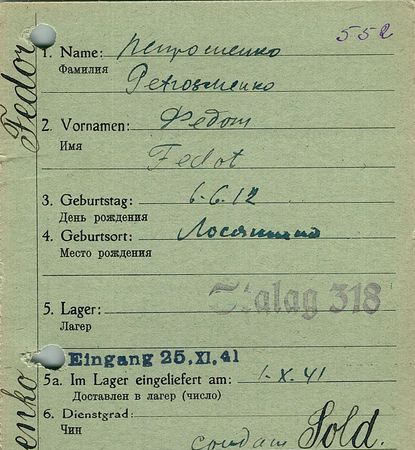 552
1. Name: Петрошенко
Фамилия
Petroschenko
2. Vornamen: Федот
Имя
Fedot
3. Geburtstag: 6.6.12
День рождения
4. Geburtsort:
Место рождения
Stalag 318
5. Lager:
Лагерь
Eingang 25. XI. 41
5a. Im Lager eingeliefert am: 1.X.41
Доставлен в лагерь (число)
6. Dienstgrad:
Чин
солдат Sold.
Fedor
enko